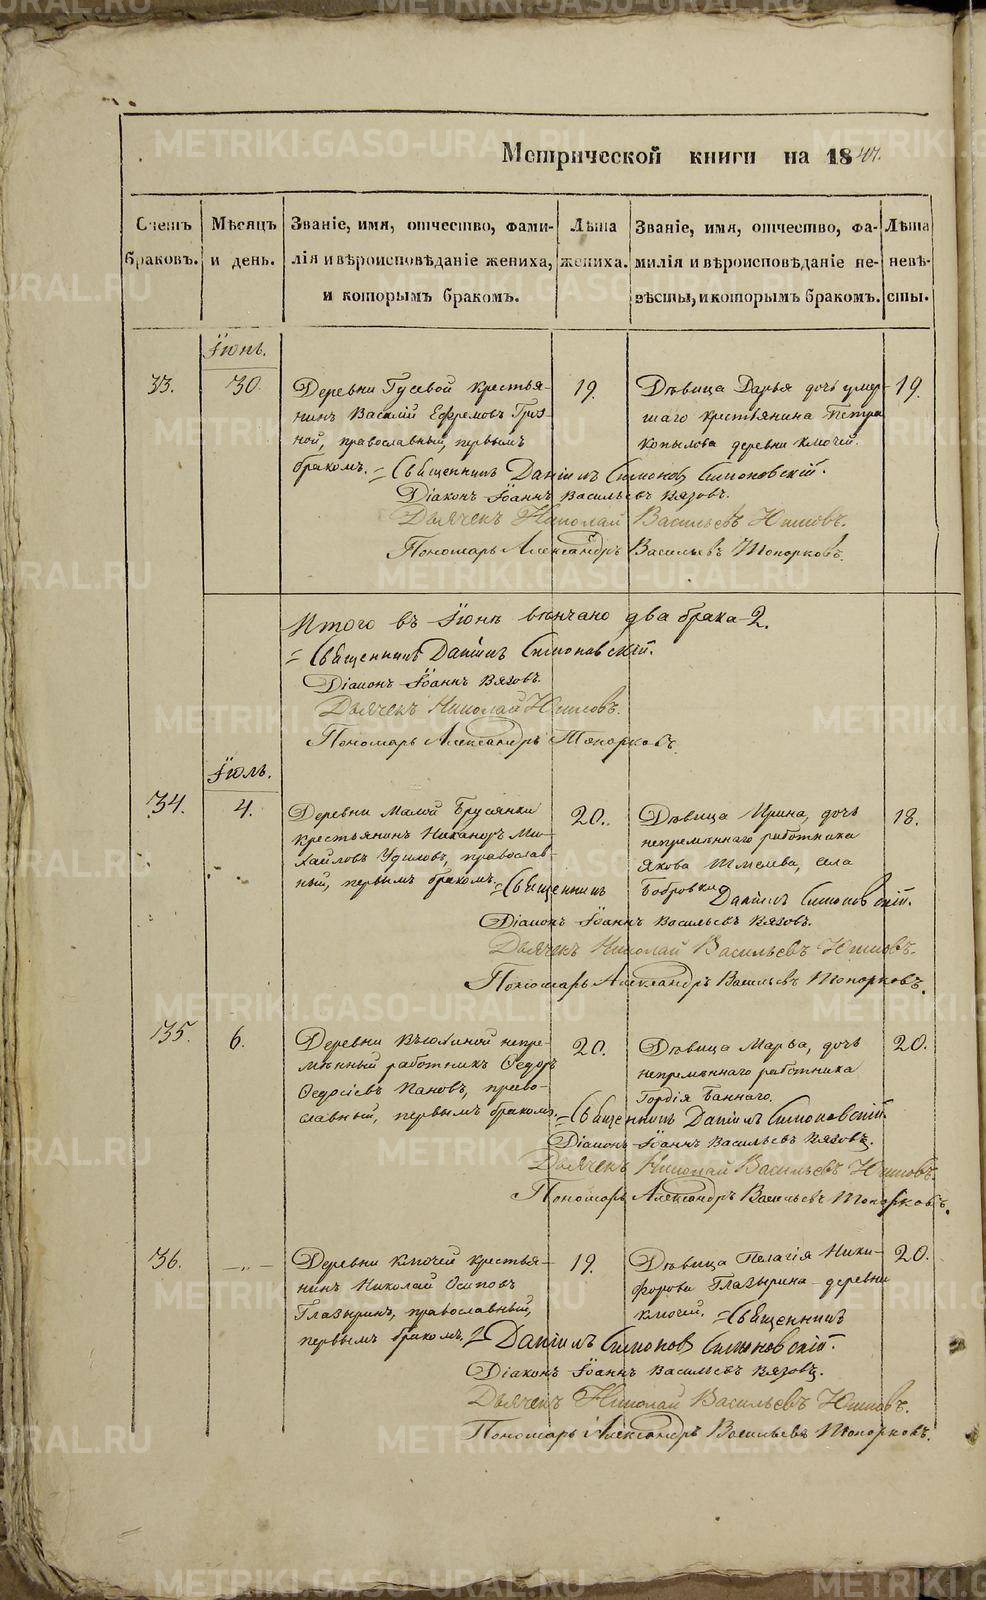 METRIKI.GASO-URAL.RU
Метрической книги на 1847.
Счетъ браковъ.
Мѣсяцъ и день.
Званіе, имя, отчество, фами-
лія и вѣроисповѣданіе жениха,
и которымъ бракомъ.
Лѣта жениха.
Званіе, имя, отчество, фа-
милія и вѣроисповѣданіе не-
вѣсты, и которымъ бракомъ.
Лѣта невѣ-
сты.
Іюнь.
33.
30.
Деревни Гусевой крестья-
нинъ Василій Ефремовъ Гряз-
ной, православный, первымъ
бракомъ.
19.
Дѣвица Дарья дочь умер-
шаго крестьянина Петра
Копылова деревни Ключей.
19.
Священникъ Даніилъ Симоновъ Симоновскій.
Діаконъ Іоаннъ Васильевъ Вязовъ.
Дьячекъ Николай Васильевъ
Пономарь Александръ Васильевъ Топорковъ.
Итого въ Іюнѣ вѣнчано два брака 2.
Священникъ Даніилъ Симоновскій.
Діаконъ Іоаннъ Вязовъ.
Дьячекъ Николай
Пономарь Александръ Топорковъ.
Іюль.
34.
4.
Деревни Малой Брусянки
крестьянинъ Никаноръ Ми-
хайловъ Удиловъ, православ-
ный, первымъ бракомъ.
20.
Дѣвица Ирина, дочь
непремѣннаго работника
Якова села
Бобровки
18.
Священникъ Даніилъ Симоновскій.
Діаконъ Іоаннъ Васильевъ Вязовъ.
Дьячекъ Николай Васильевъ
Пономарь Александръ Васильевъ Топорковъ.
35.
6.
Деревни непре-
мѣнный работникъ Ѳедоръ
Ѳедосіевъ Пановъ, право-
славный, первымъ бракомъ.
20.
Дѣвица Марѳа, дочь
непремѣннаго работника
Гордія Баннаго.
20.
Священникъ Даніилъ Симоновскій.
Діаконъ Іоаннъ Васильевъ Вязовъ.
Дьячекъ Николай Васильевъ
Пономарь Александръ Васильевъ Топорковъ.
36.
— „ —
Деревни Ключей крестья-
нинъ Николай Осиповъ
Глазыринъ, православный,
первымъ бракомъ.
19.
Дѣвица Пелагія Ники-
форова Глазырина деревни
Ключей.
20.
Священникъ
Даніилъ Симоновъ Симоновскій.
Діаконъ Іоаннъ Васильевъ Вязовъ.
Дьячекъ Николай Васильевъ
Пономарь Александръ Васильевъ Топорковъ.